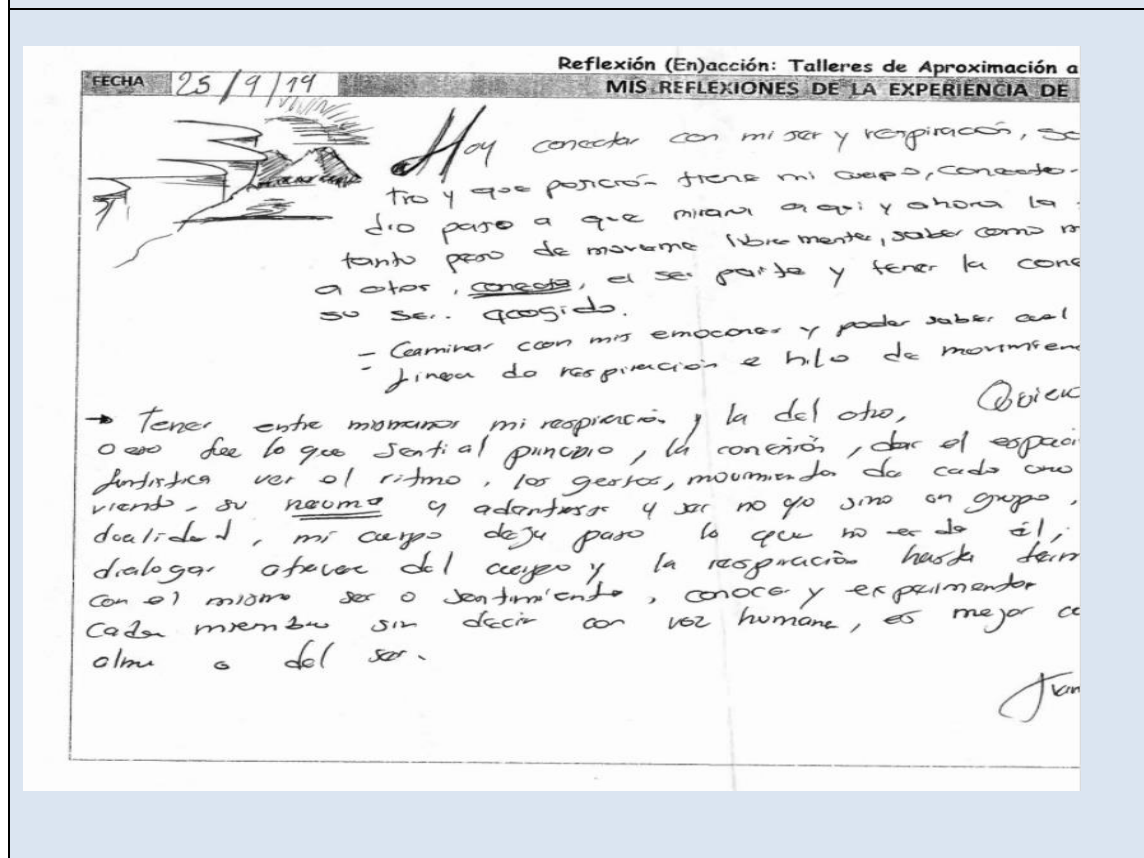 Reflexión (En)acción: Talleres de Aproximación a
FECHA 25/9/19 MIS REFLEXIONES DE LA EXPERIENCIA DE
Hoy conectar con mi ser y respiración,
tro y que posición tiene mi cuerpo,
dio paso a que mirara aqui y ahora la
tanto peso de moverme libremente, saber como
a otor, conecta, el ser parte y tener la cone
su ser. acogido.
- Caminar con mis emociones y poder saber cual
- Linea do respiración e hilo de movimien
→ Tener entre mis manos mi respiración y la del otro, Quien
o eso fue lo que senti al principio, la conexión, dar el espaci
ver el ritmo, los gestos, movimientos de cada uno
viendo, su neuma y adentrarse y ser no yo sino un grupo,
dualidad, mi cuerpo deja paso lo que no es de él,
dialogar atravez del cuerpo y la respiración hasta term
con el mismo ser o sentimiento, conocer y experimentar
Cada miembro sin decir con voz humana, es mejor
alma o del ser.